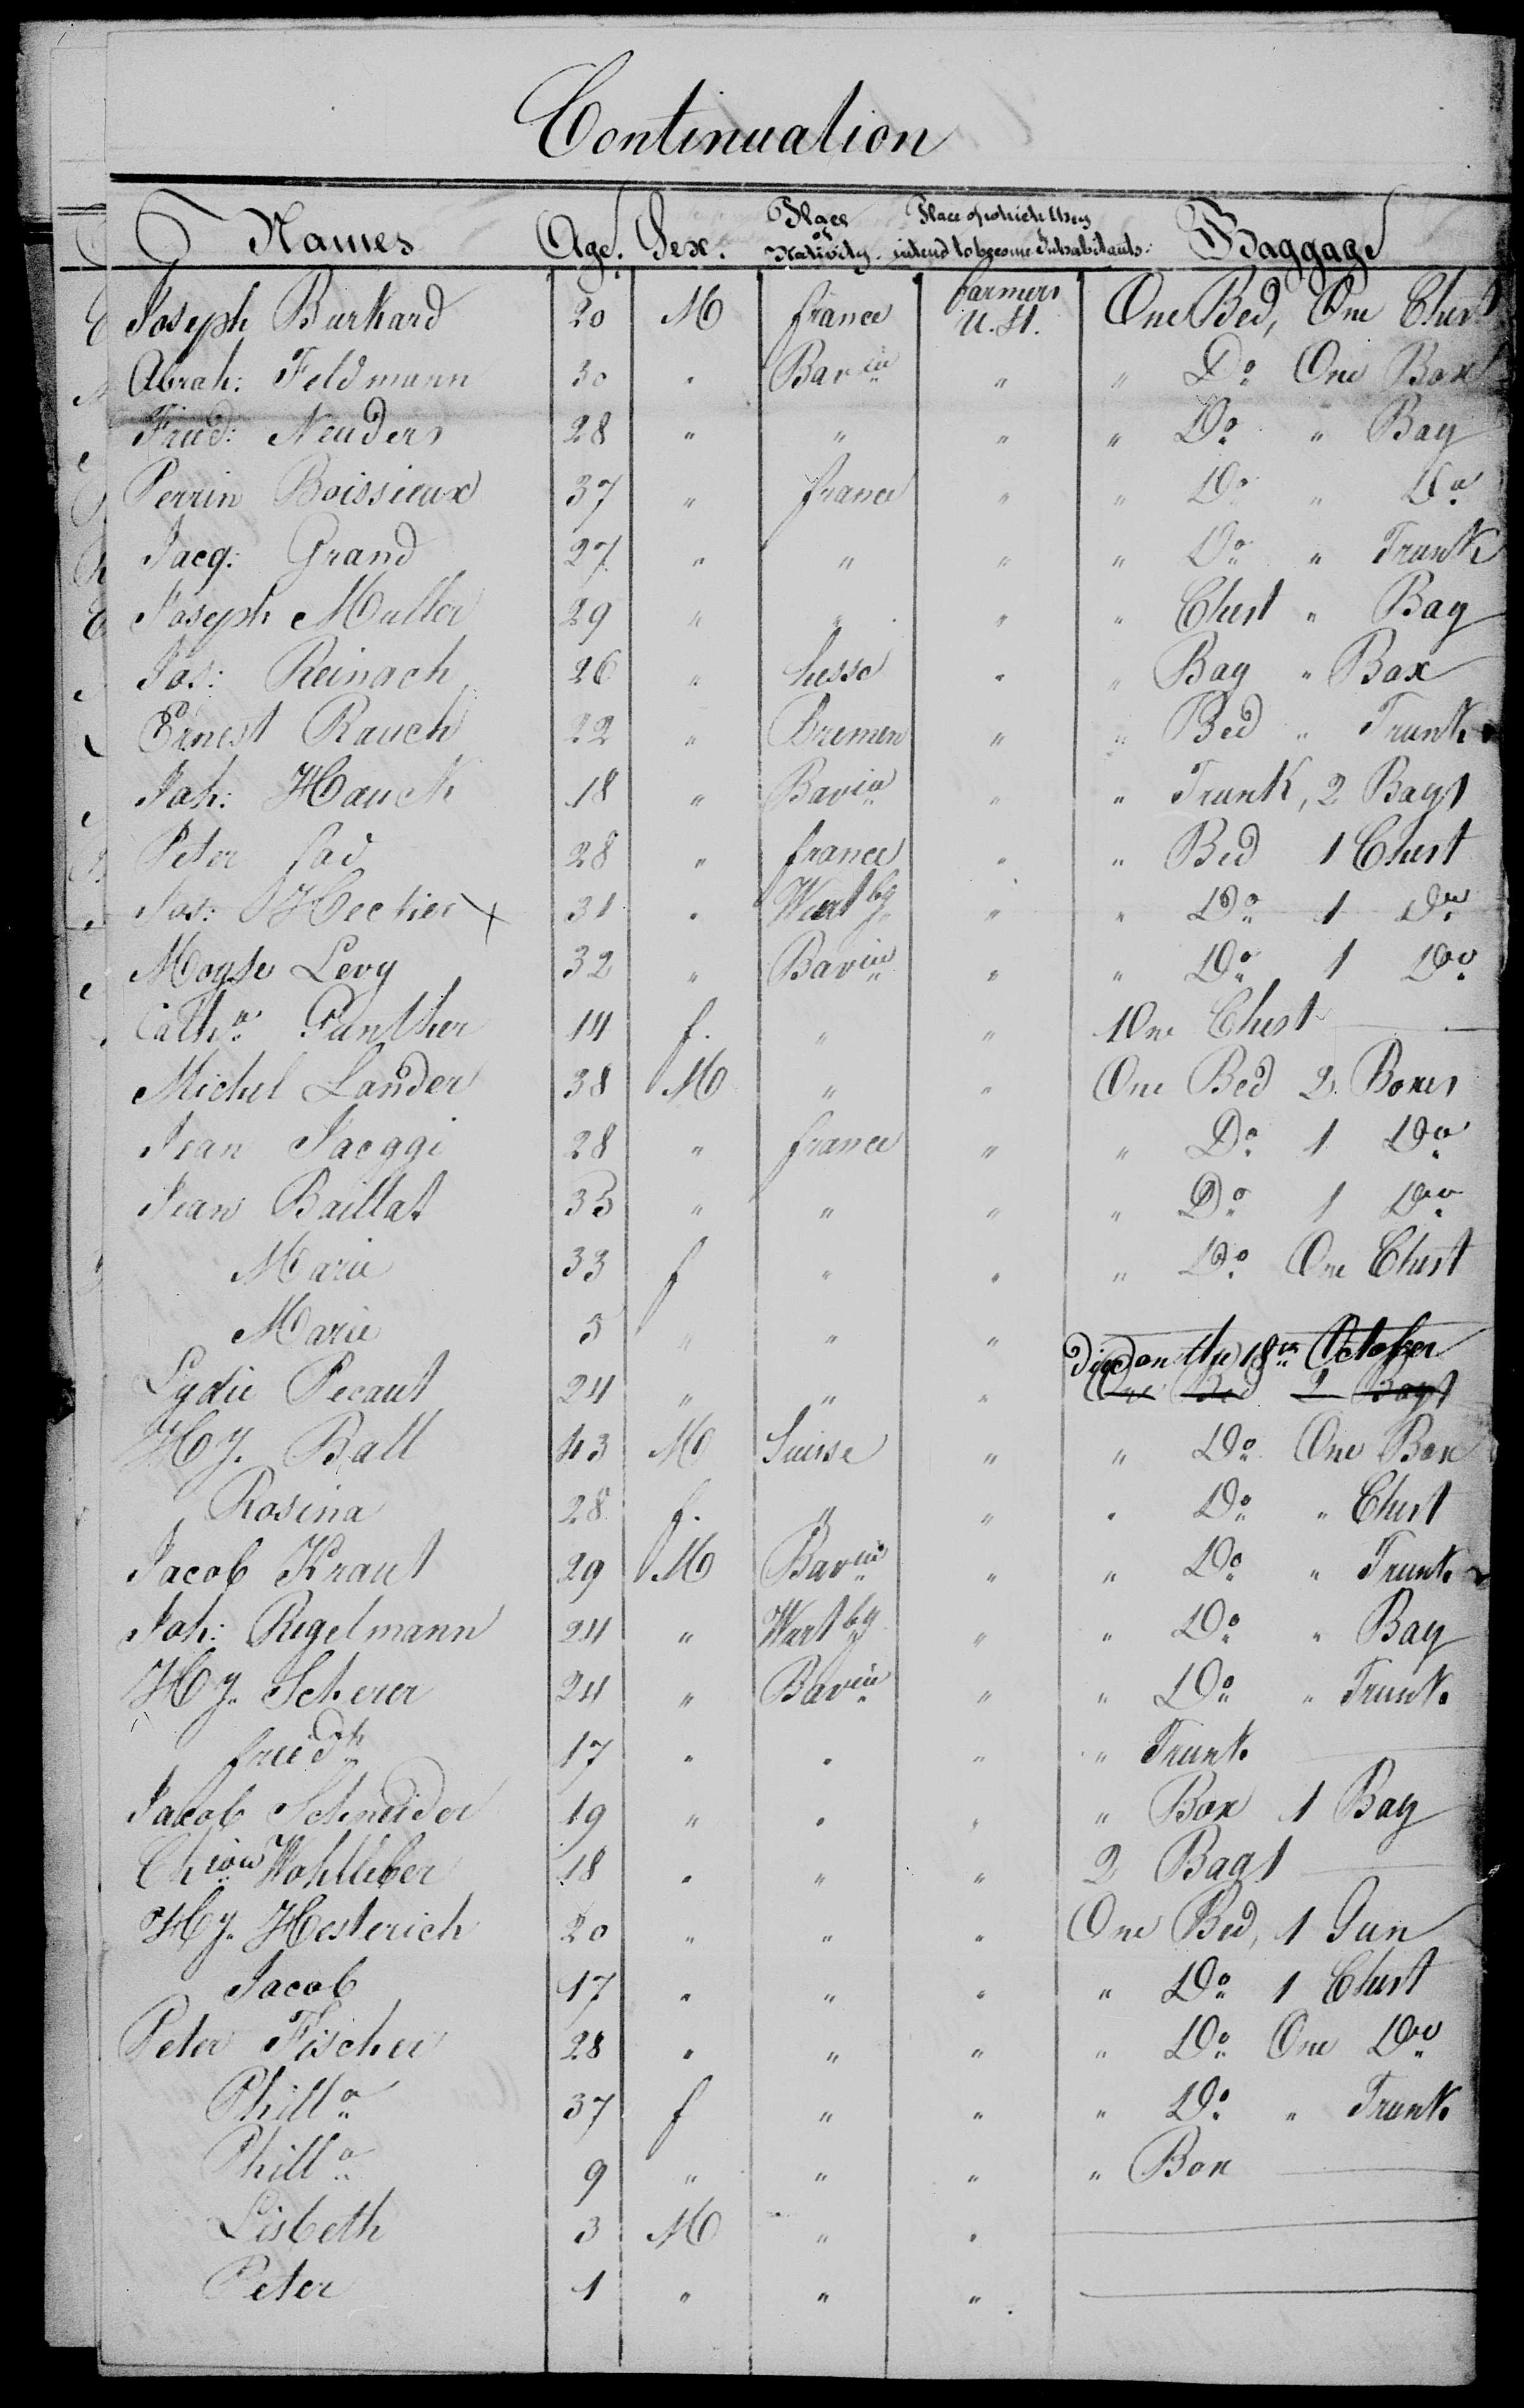 Continuation
Names Age. Sex. Place of Nativity. Place of which they intend to become Inhabitants: Baggage
Joseph Burkard 20 M france farmers U. St. One Bed, One Chest
Abrah: Feldmann 30 " Bavia " " Do One Box
Fried: Neuders 28 " " " " Do " Bag
Perrin Boissieux 37 " france " " Do " Do
Jacq: Grand 27 " " " " Do " Trunk
Joseph Muller 29 " " " " Chest " Bag
Jos: Reinach 26 " hesse " " Bag " Box
Ernest Rauch 22 " Bremen " " Bed " Trunk
Joh: Hauck 18 " Bavia " " Trunk, 2 Bags
Peter 28 " france " " Bed 1 Chest
Jos: Heckier x 31 " Wurtbg " " Do 1 Do
Moyse Levy 32 " Bavia " " Do 1 Do
Catha Gunther 14 f. " " One Chest
Michel Lander 38 M " " One Bed 2 Boxes
Jean Jaeggi 28 " france " " Do 1 Do
Jean Baillat 33 " " " " Do 1 Do
Marie 33 f " " " Do One Chest
Marie 3 " " "
died on the 18th October
Lydie Pecaut 24 " " " One Bed 2 Bags
Hy. Ball 43 M Suisse " " Do One Box
Rosina 28 f. " " " Do " Chest
Jacob Kraut 29 M Bavia " " Do " Trunk
Joh: Regelmann 24 " Wurtbg " " Do " Bag
Hy. Scherer 24 " Bavia " " Do " Trunk
friedh 17 " " " " Trunk
Jacob Schneider 19 " " " " Box 1 Bag
Chion Wohlleber 18 " " " 2 Bags
Hy. Hesterich 20 " " " One Bed, 1 Gun
Jacob 17 " " " " Do 1 Chest
Peter Fischer 28 " " " " Do One Do
Philla 37 f " " " Do " Trunk
Philla 9 " " " " Box
Lisbeth 3 M " "
Peter 1 " " "